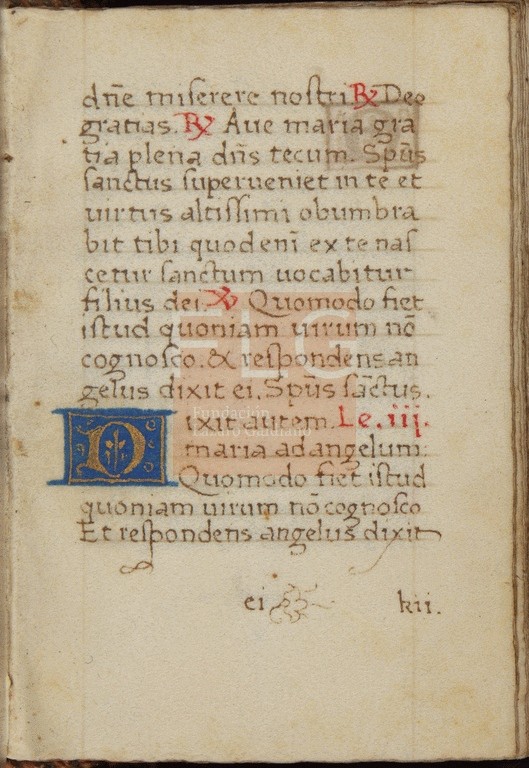 dn̄e miserere nostri. ℟ Deo
gratias. ℟ Aue maria gra
tia plena dn̄s tecum. Sp̄us
sanctus superueniet in te et
uirtus altissimi obumbra
bit tibi quod eni̅ ex te nas
cetur sanctum uocabitur
filius dei. ℣ Quomodo fiet
istud quoniam uirum nō
cognosco. & respondens an
gelus dixit ei. Sp̄us sāctus.
Dixit autem. Le. iii.
maria ad angelum:
Quomodo fiet istud
quoniam uirum nō cognosco
Et respondens angelus dixit
ei kii.
FLG
Fundación
Lázaro Galdiano